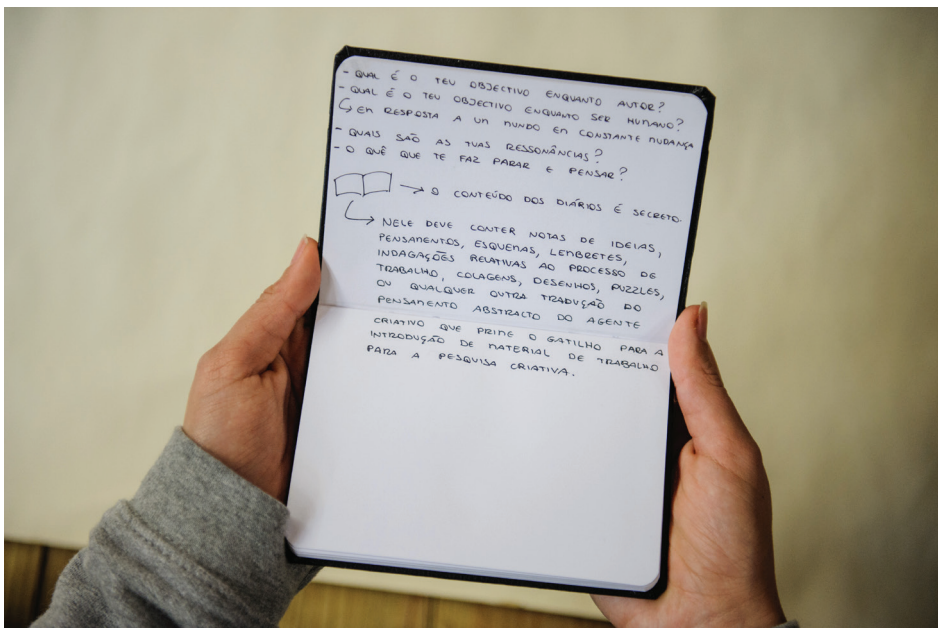 - QUAL É O TEU OBJECTIVO ENQUANTO AUTOR?
- QUAL É O TEU OBJECTIVO ENQUANTO SER HUMANO?
↳ EM RESPOSTA A UM MUNDO EM CONSTANTE MUDANÇA
- QUAIS SÃO AS TUAS RESSONÂNCIAS?
- O QUÊ QUE TE FAZ PARAR E PENSAR?
→ O CONTEÚDO DOS DIÁRIOS É SECRETO.
↳ NELE DEVE CONTER NOTAS DE IDEIAS,
PENSAMENTOS, ESQUEMAS, LEMBRETES,
INDAGAÇÕES RELATIVAS AO PROCESSO DE
TRABALHO, COLAGENS, DESENHOS, PUZZLES,
OU QUALQUER OUTRA TRADUÇÃO DO
PENSAMENTO ABSTRACTO DO AGENTE
CRIATIVO QUE PRIME O GATILHO PARA A
INTRODUÇÃO DE MATERIAL DE TRABALHO
PARA A PESQUISA CRIATIVA.